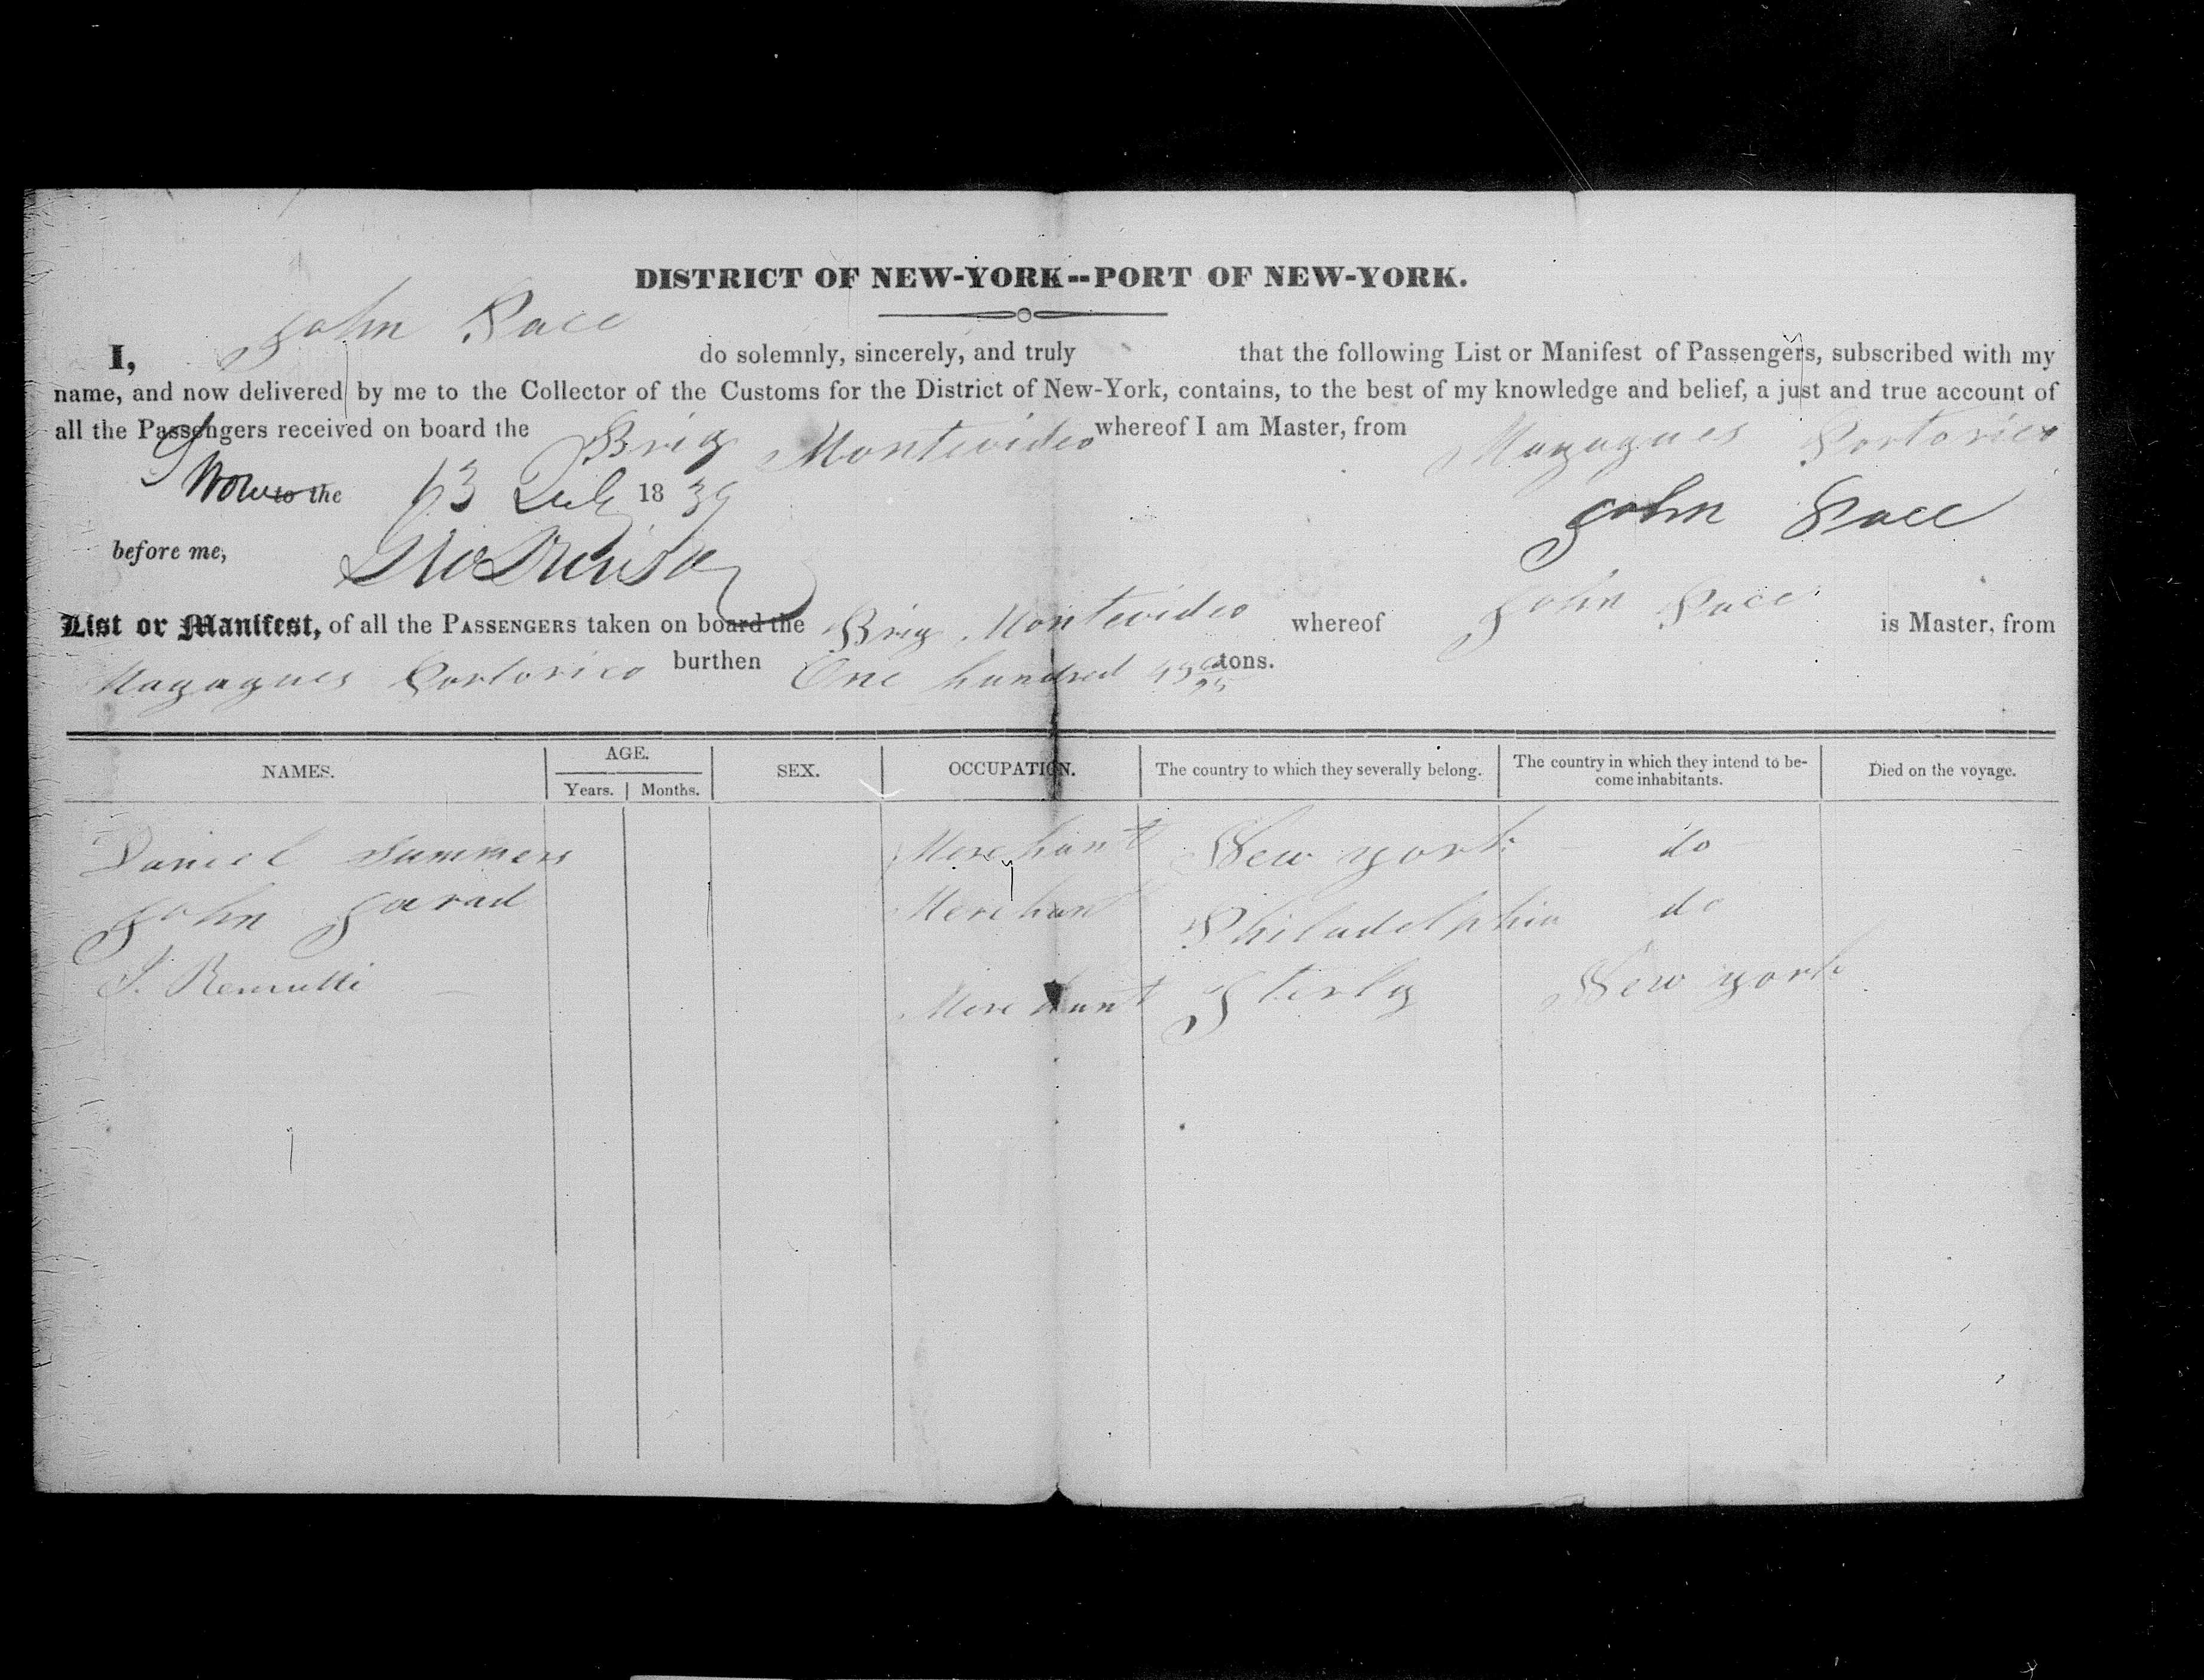 DISTRICT OF NEW-YORK--PORT OF NEW-YORK.
I, John Pace do solemnly, sincerely, and truly that the following List or Manifest of Passengers, subscribed with my
name, and now delivered by me to the Collector of the Customs for the District of New-York, contains, to the best of my knowledge and belief, a just and true account of
all the Passengers received on board the Brig Montevideo whereof I am Master, from Mayagues Portorico
to the 13 July 1839 John Pace
before me,
List or Manifest, of all the PASSENGERS taken on board the Brig Montevideo whereof John Pace is Master, from
Mayagues Portorico burthen One hundred tons.
NAMES. AGE. Years. Months. SEX. OCCUPATION. The country to which they severally belong. The country in which they intend to be-
come inhabitants. Died on the voyage.
Daniel Summers Merchant New york do
John Merchant Philadelphia do
J. Merchant New york